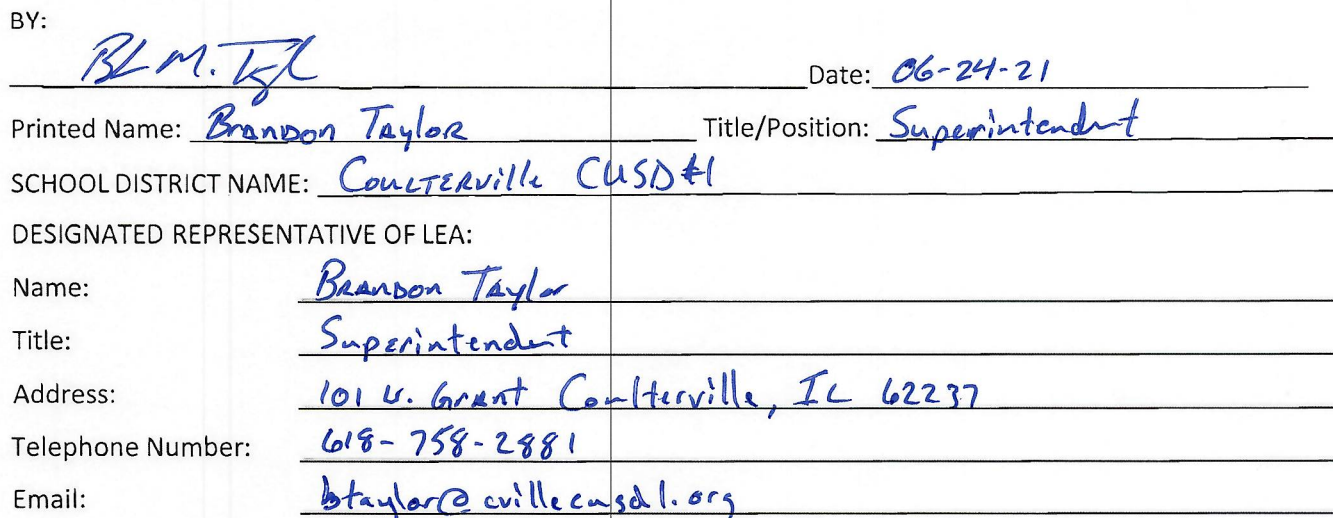 BY:
BL M. Tyl Date: 06-24-21
Printed Name: Brandon Taylor Title/Position: Superintendent
SCHOOL DISTRICT NAME: Coulterville CUSD #1
DESIGNATED REPRESENTATIVE OF LEA:
Name: Brandon Taylor
Title: Superintendent
Address: 101 W. Grant Coulterville, IL 62237
Telephone Number: 618-758-2881
Email: btaylor@cvillecusd1.org